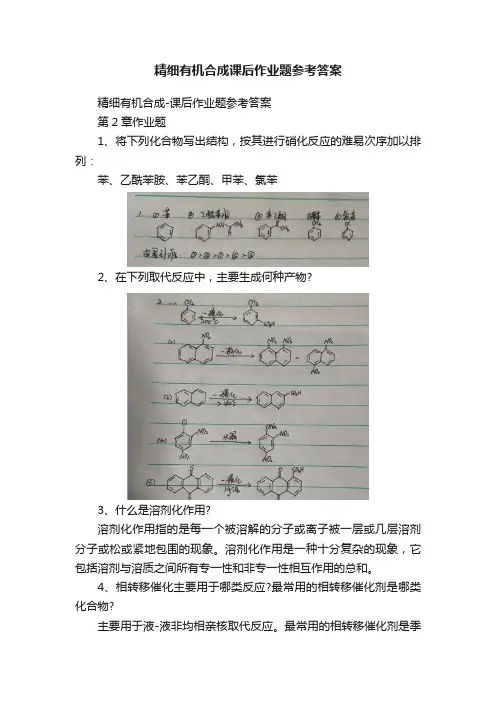 精细有机合成课后作业题参考答案
精细有机合成-课后作业题参考答案
第2章作业题
1、将下列化合物写出结构，按其进行硝化反应的难易次序加以排
列：
苯、乙酰苯胺、苯乙酮、甲苯、氯苯
1. ① 苯 ② 乙酰苯胺 ③ 苯乙酮
NH CH₃ CH₃
2、在下列取代反应中，主要生成何种产物?
2.
CH₃ 一磺化 CH₃
SO₃H
NO₂ 一硝化 NO₂ NO₂ NO₂
NO₂
一磺化 SO₃H
Cl NO₂ 水解 NO₂
NO₂ NO₂
一磺化 SO₃H
3、什么是溶剂化作用?
溶剂化作用指的是每一个被溶解的分子或离子被一层或几层溶剂
分子或松或紧地包围的现象。溶剂化作用是一种十分复杂的现象，它
包括溶剂与溶质之间所有专一性和非专一性相互作用的总和。
4、相转移催化主要用于哪类反应?最常用的相转移催化剂是哪类
化合物?
主要用于液-液非均相亲核取代反应。最常用的相转移催化剂是季